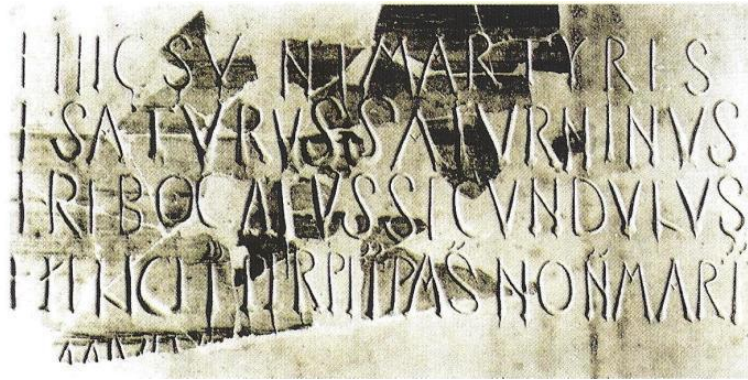 + HIC SVNT MARTYRES
+ SATVRVS SATVRNINVS
+ REBOCATVS SECVNDVLVS
+ FELICIT PERPET PAS NON MART